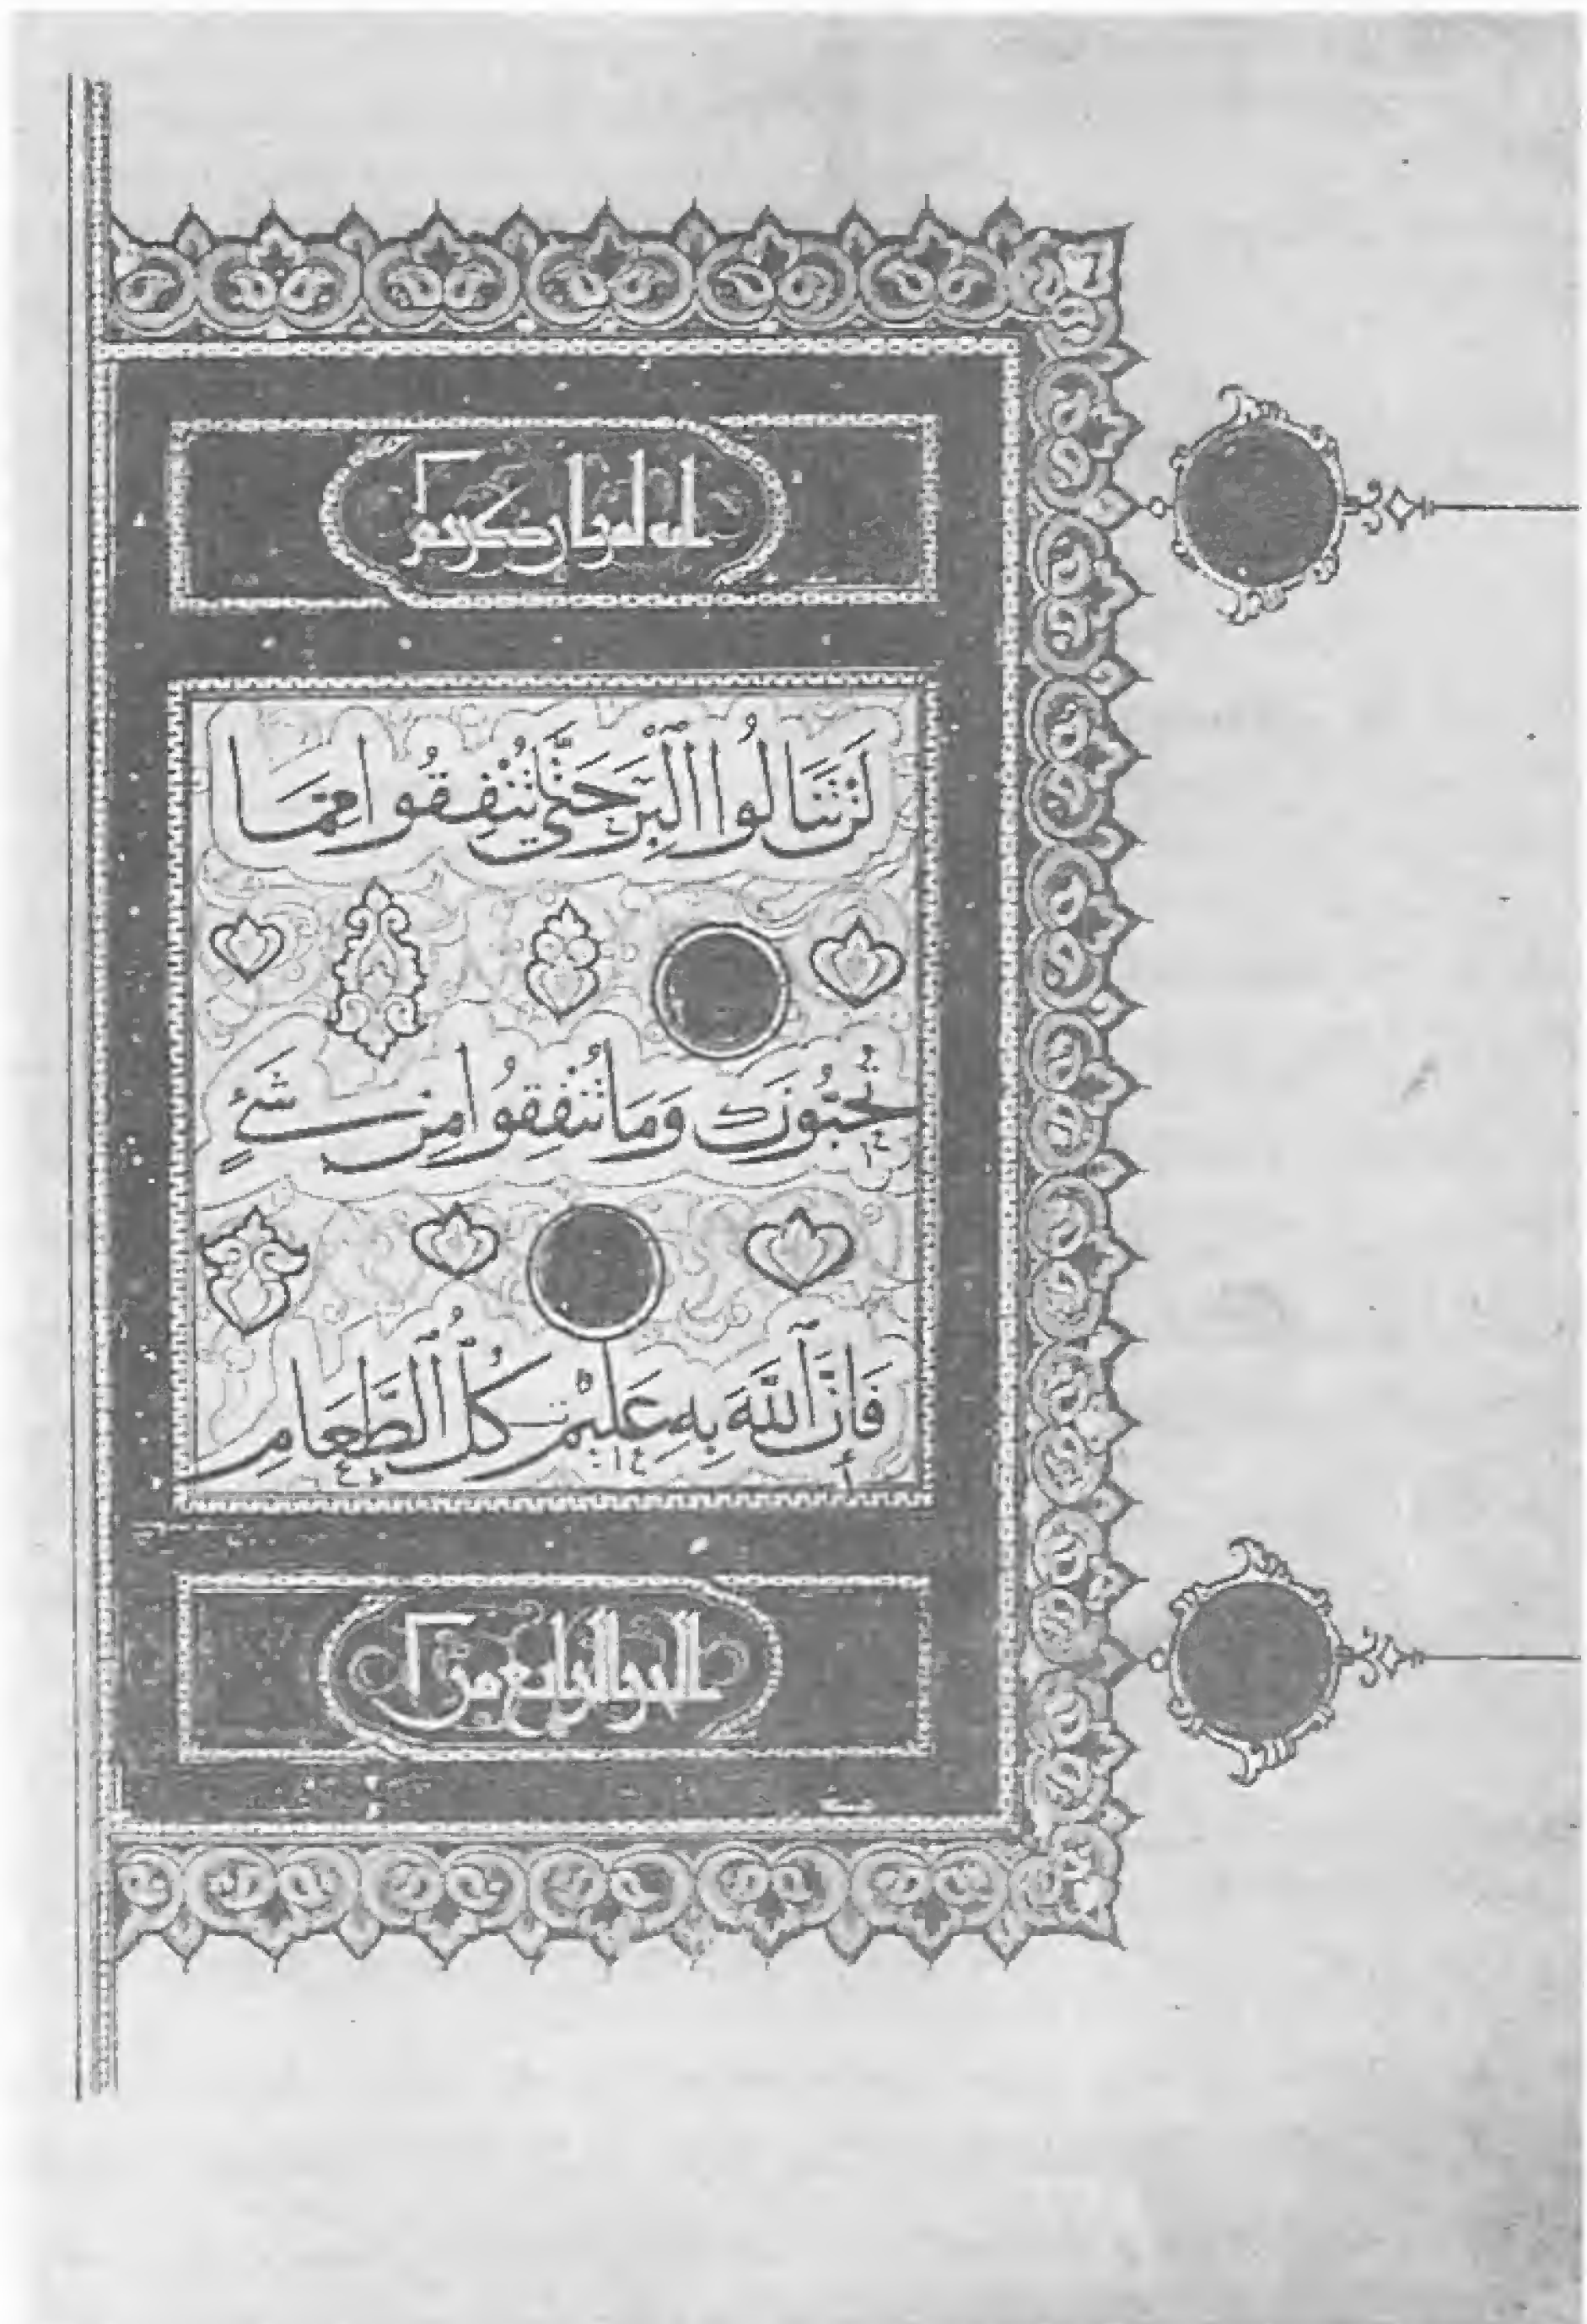 إنه لقرآن كريم
لَنْ تَنَالُوا الْبِرَّ حَتَّى تُنْفِقُوا مِمَّا
تُحِبُّونَ وَمَا تُنْفِقُوا مِنْ شَيْءٍ
فَإِنَّ اللَّهَ بِهِ عَلِيمٌ كُلُّ الطَّعَامِ
الجزو الرابع من